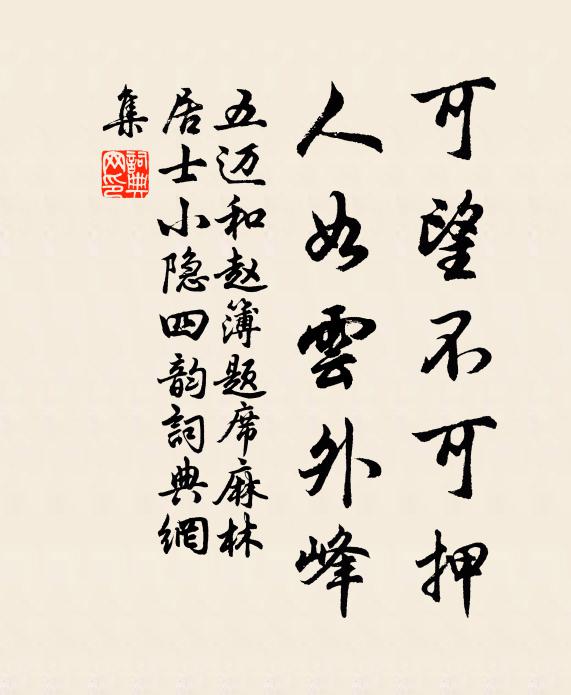 可望不可押
人如雲外峰
五迈和赵簿题席麻林
居士小隐四韵詞典網
集
詞典
网印